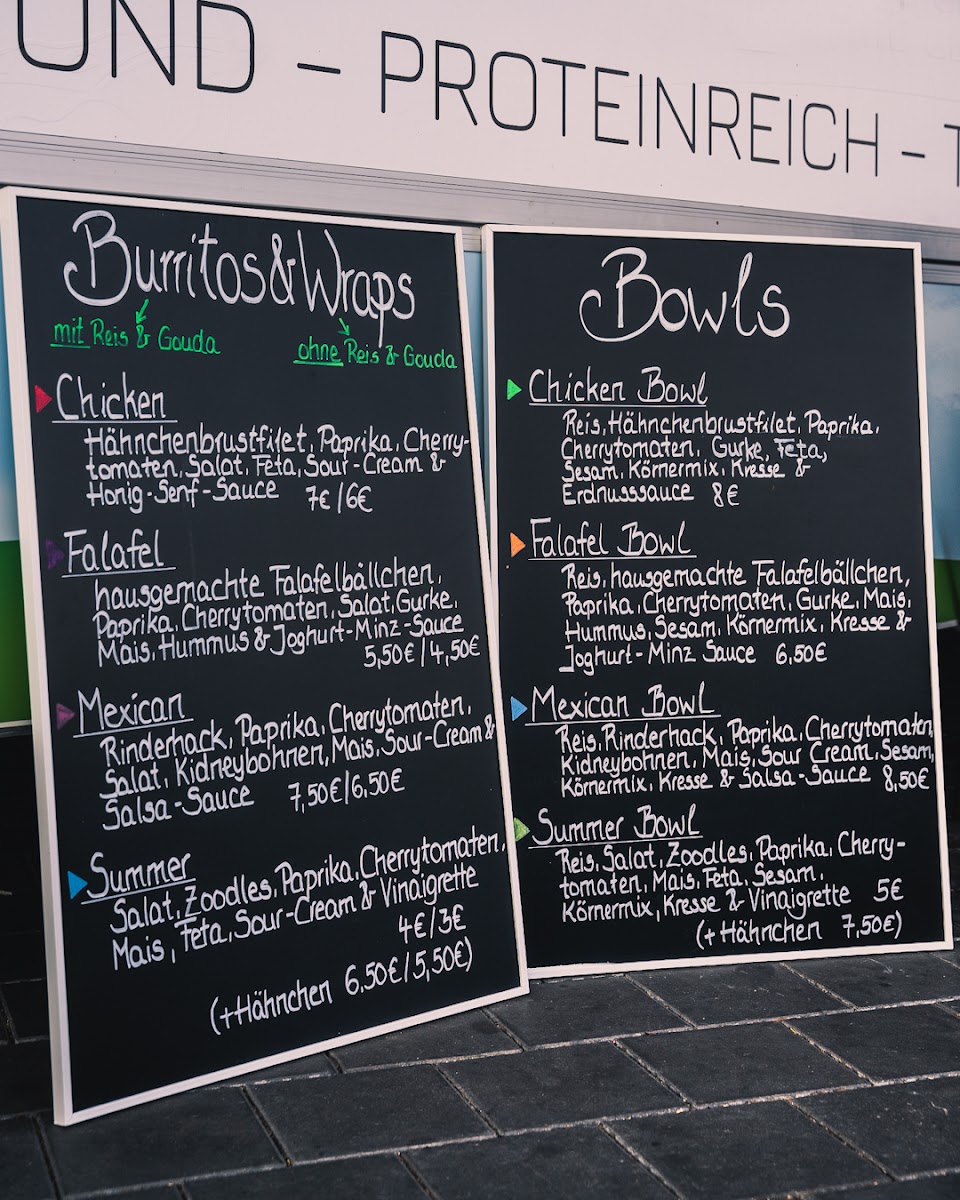 UND – PROTEINREICH –
Burritos & Wraps
mit Reis & Gouda
ohne Reis & Gouda
Chicken
Hähnchenbrustfilet, Paprika, Cherry-
tomaten, Salat, Feta, Sour-Cream &
Honig-Senf-Sauce 7€/6€
Falafel
hausgemachte Falafelbällchen,
Paprika, Cherrytomaten, Salat, Gurke,
Mais, Hummus & Joghurt-Minz-Sauce
5,50€/4,50€
Mexican
Rinderhack, Paprika, Cherrytomaten,
Salat, Kidneybohnen, Mais, Sour-Cream &
Salsa-Sauce 7,50€/6,50€
Summer
Salat, Zoodles, Paprika, Cherrytomaten,
Mais, Feta, Sour-Cream & Vinaigrette
4€/3€
(+Hähnchen 6,50€/5,50€)
Bowls
Chicken Bowl
Reis, Hähnchenbrustfilet, Paprika,
Cherrytomaten, Gurke, Feta,
Sesam, Körnermix, Kresse &
Erdnusssauce 8€
Falafel Bowl
Reis, hausgemachte Falafelbällchen,
Paprika, Cherrytomaten, Gurke, Mais,
Hummus, Sesam, Körnermix, Kresse &
Joghurt-Minz Sauce 6,50€
Mexican Bowl
Reis, Rinderhack, Paprika, Cherrytomaten,
Kidneybohnen, Mais, Sour Cream, Sesam,
Körnermix, Kresse & Salsa-Sauce 8,50€
Summer Bowl
Reis, Salat, Zoodles, Paprika, Cherry-
tomaten, Mais, Feta, Sesam,
Körnermix, Kresse & Vinaigrette 5€
(+Hähnchen 7,50€)